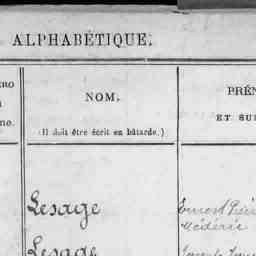 ALPHABÉTIQUE.
NOM.
(Il doit être écrit en bâtarde.)
PRÉN
ET SUR
Lesage
Ernest Pier
Médéric
Lesage